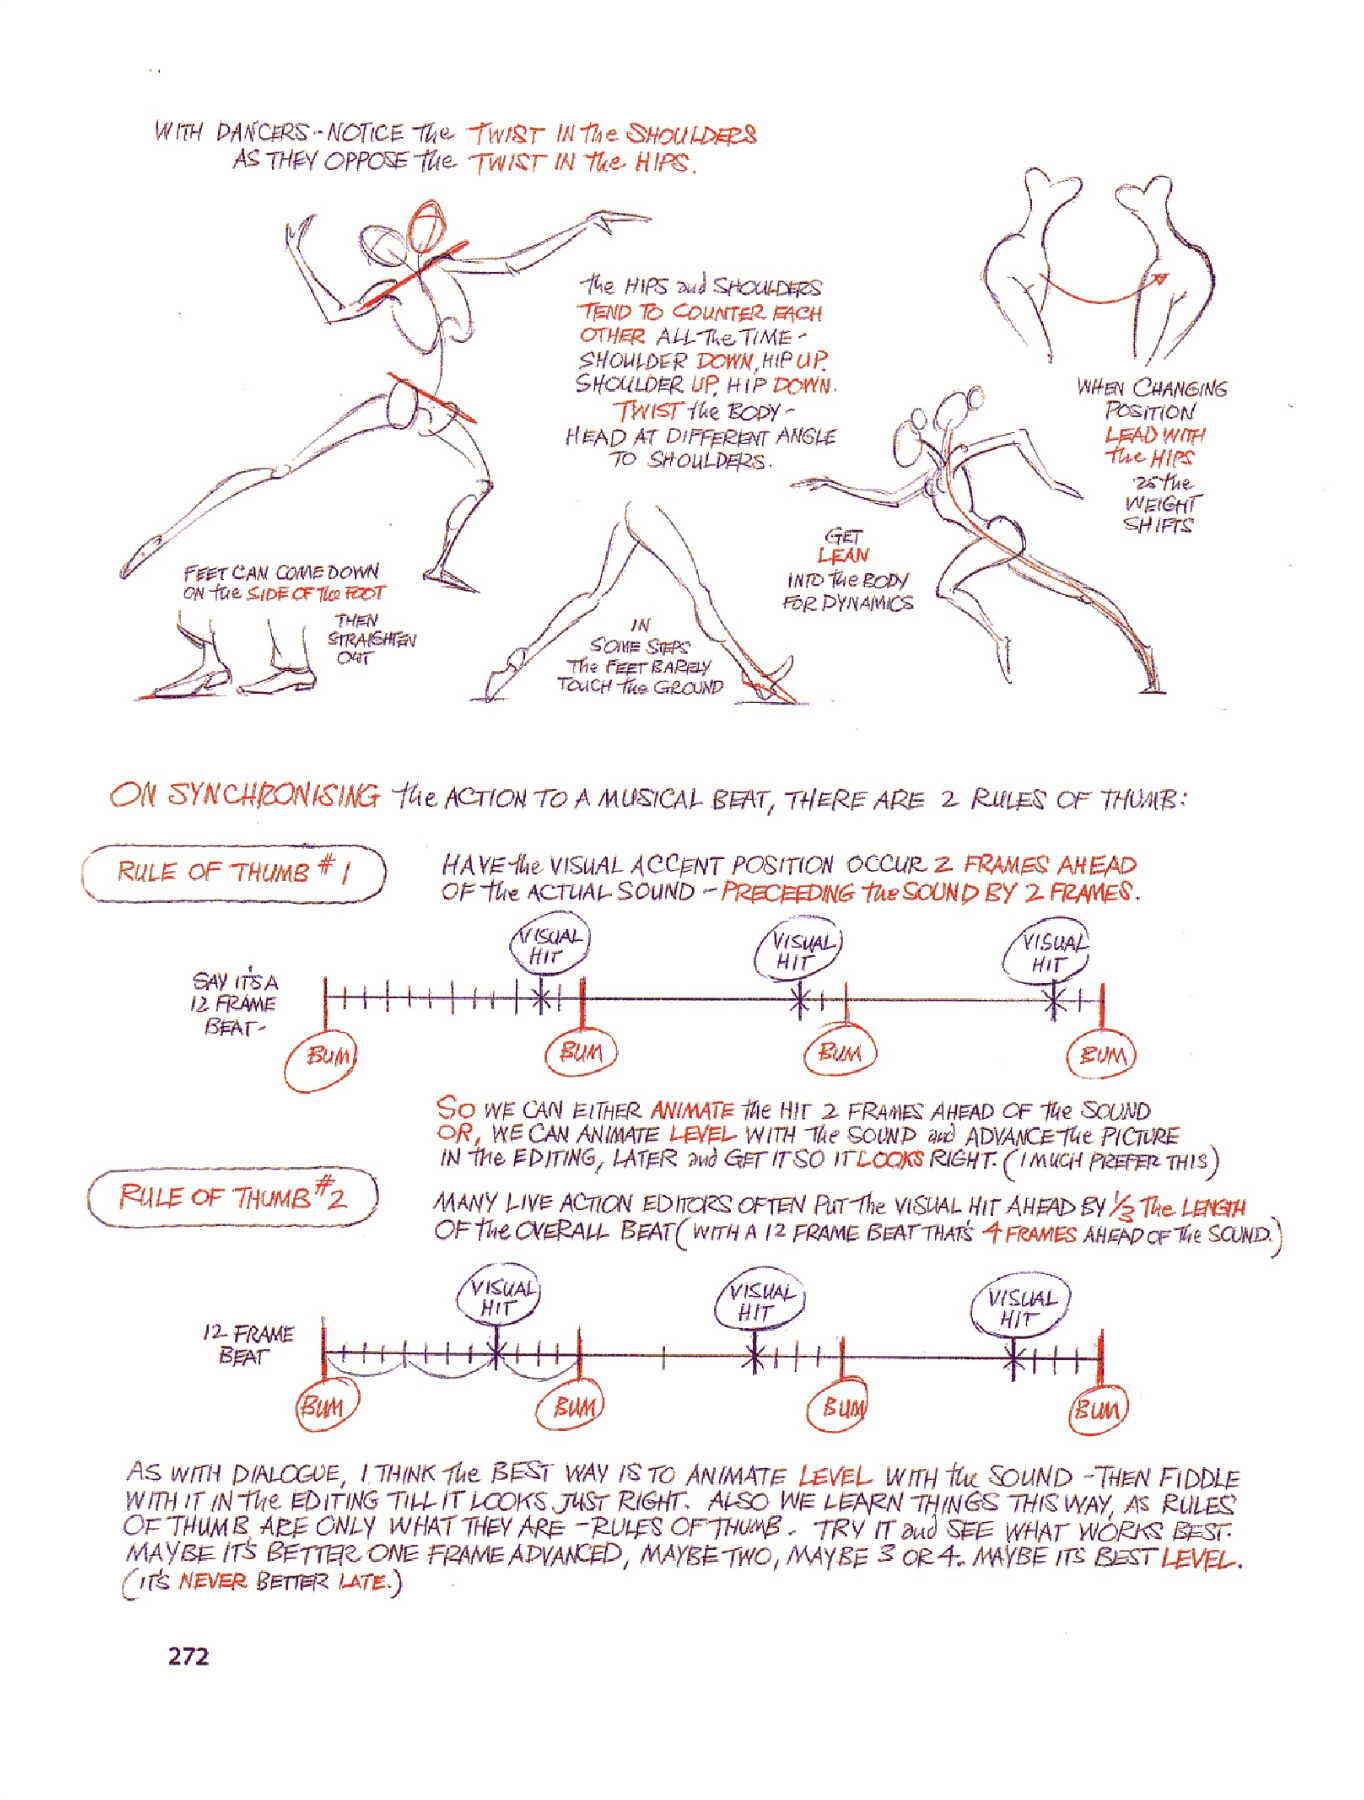 WITH DANCERS - NOTICE The TWIST IN The SHOULDERS
AS THEY OPPOSE The TWIST IN The HIPS.
The HIPS and SHOULDERS
TEND TO COUNTER EACH
OTHER ALL The TIME -
SHOULDER DOWN, HIP UP.
SHOULDER UP, HIP DOWN.
TWIST the BODY -
HEAD AT DIFFERENT ANGLE
TO SHOULDERS.
WHEN CHANGING
POSITION
LEAD WITH
The HIPS
as the
WEIGHT
SHIFTS
GET
LEAN
INTO The BODY
FOR DYNAMICS
FEET CAN COME DOWN
ON the SIDE OF The FOOT
THEN
STRAIGHTEN
OUT
IN
SOME STEPS
The FEET BARELY
TOUCH the GROUND
ON SYNCHRONISING the ACTION TO A MUSICAL BEAT, THERE ARE 2 RULES OF THUMB:
RULE OF THUMB #1
HAVE the VISUAL ACCENT POSITION OCCUR 2 FRAMES AHEAD
OF the ACTUAL SOUND - PRECEEDING the SOUND BY 2 FRAMES.
VISUAL
HIT
VISUAL
HIT
VISUAL
HIT
SAY IT'S A
12 FRAME
BEAT-
BUM
BUM
BUM
BUM
SO WE CAN EITHER ANIMATE the HIT 2 FRAMES AHEAD OF the SOUND
OR, WE CAN ANIMATE LEVEL WITH The SOUND and ADVANCE the PICTURE
IN the EDITING, LATER and GET IT SO IT LOOKS RIGHT. (I MUCH PREFER THIS)
RULE OF THUMB #2
MANY LIVE ACTION EDITORS OFTEN PUT The VISUAL HIT AHEAD BY 1/3 The LENGTH
OF the OVERALL BEAT (WITH A 12 FRAME BEAT THAT'S 4 FRAMES AHEAD OF The SOUND.)
VISUAL
HIT
VISUAL
HIT
VISUAL
HIT
12 FRAME
BEAT
BUM
BUM
BUM
BUM
AS WITH DIALOGUE, I THINK The BEST WAY IS TO ANIMATE LEVEL WITH the SOUND - THEN FIDDLE
WITH IT IN The EDITING TILL IT LOOKS JUST RIGHT. ALSO WE LEARN THINGS THIS WAY, AS RULES
OF THUMB ARE ONLY WHAT THEY ARE - RULES OF THUMB. TRY IT and SEE WHAT WORKS BEST.
MAYBE IT'S BETTER ONE FRAME ADVANCED, MAYBE TWO, MAYBE 3 OR 4. MAYBE ITS BEST LEVEL.
(IT'S NEVER BETTER LATE.)
272